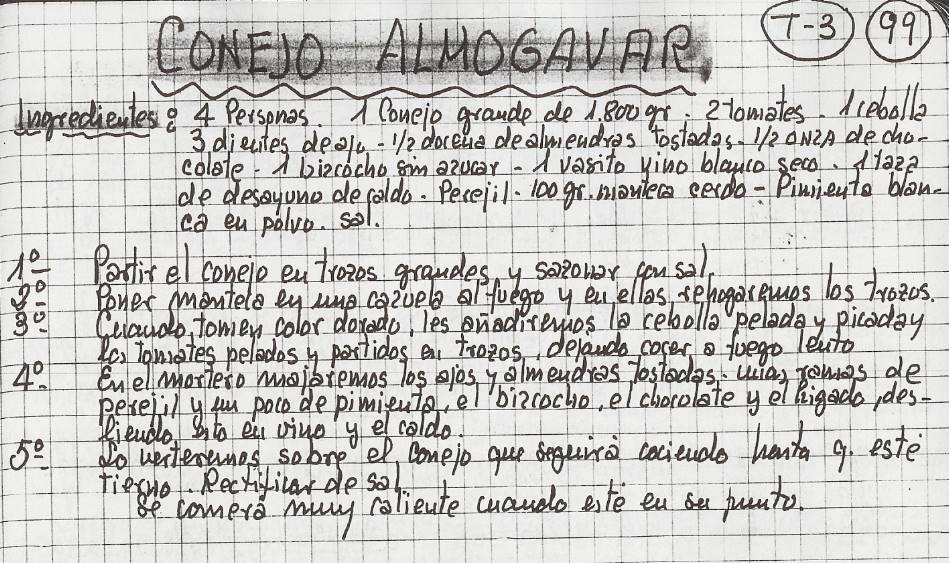 CONEJO ALMOGAVAR T-3 99
Ingredientes: 4 Personas. 1 Conejo grande de 1.800 gr. 2 tomates - 1 cebolla
3 dientes de ajo - 1/2 docena de almendras tostadas - 1/2 ONZA de cho-
colate - 1 bizcocho sin azucar - 1 vasito vino blanco seco - 1 taza
de desayuno de caldo - Perejil - 100 gr. manteca cerdo - Pimienta blan-
ca en polvo. sal.
1º- Partir el conejo en trozos grandes y sazonar con sal.
2º- Poner manteca en una cazuela al fuego y en ellas rehogaremos los trozos.
3º- Cuando tomen color dorado, les añadiremos la cebolla pelada y picada y
los tomates pelados y partidos en trozos, dejando cocer a fuego lento
4º- En el mortero majaremos los ajos y almendras tostadas. unas ramas de
perejil y un poco de pimienta, el bizcocho, el chocolate y el higado, des-
liendo esto en vino y el caldo
5º- Lo verteremos sobre el conejo que seguirá cociendo hasta q. esté
tierno. Rectificar de sal
Se comerá muy caliente cuando esté en su punto.